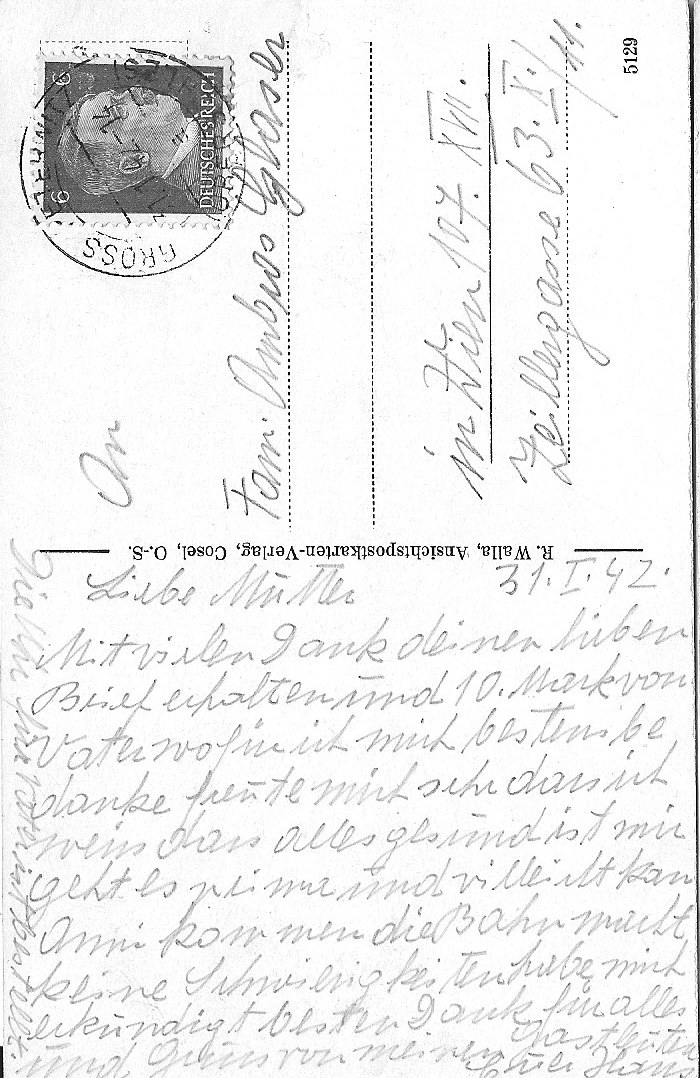 5129
6 6
DEUTSCHES REICH
GROSS
An
Fam. Ambros Glaser
in Wien 107. XVII.
Zeillergasse 63. X./11.
R. Walla, Ansichtspostkarten-Verlag, Cosel, O.-S.
31.I.42.
Liebe Mutter
Mit vielen Dank deinen lieben
Brief erhalten und 10. Mark von
Vater wofür ich mich bestens be
danke freute mich sehr dass ich
weis dass alles gesund ist mir
geht es prima und villeicht kan
Anni kommen die Bahn macht
keine Schwierigkeiten habe mich
erkundigt besten Dank für alles
und Gruss von meinen Gastleuten
Euer Hans